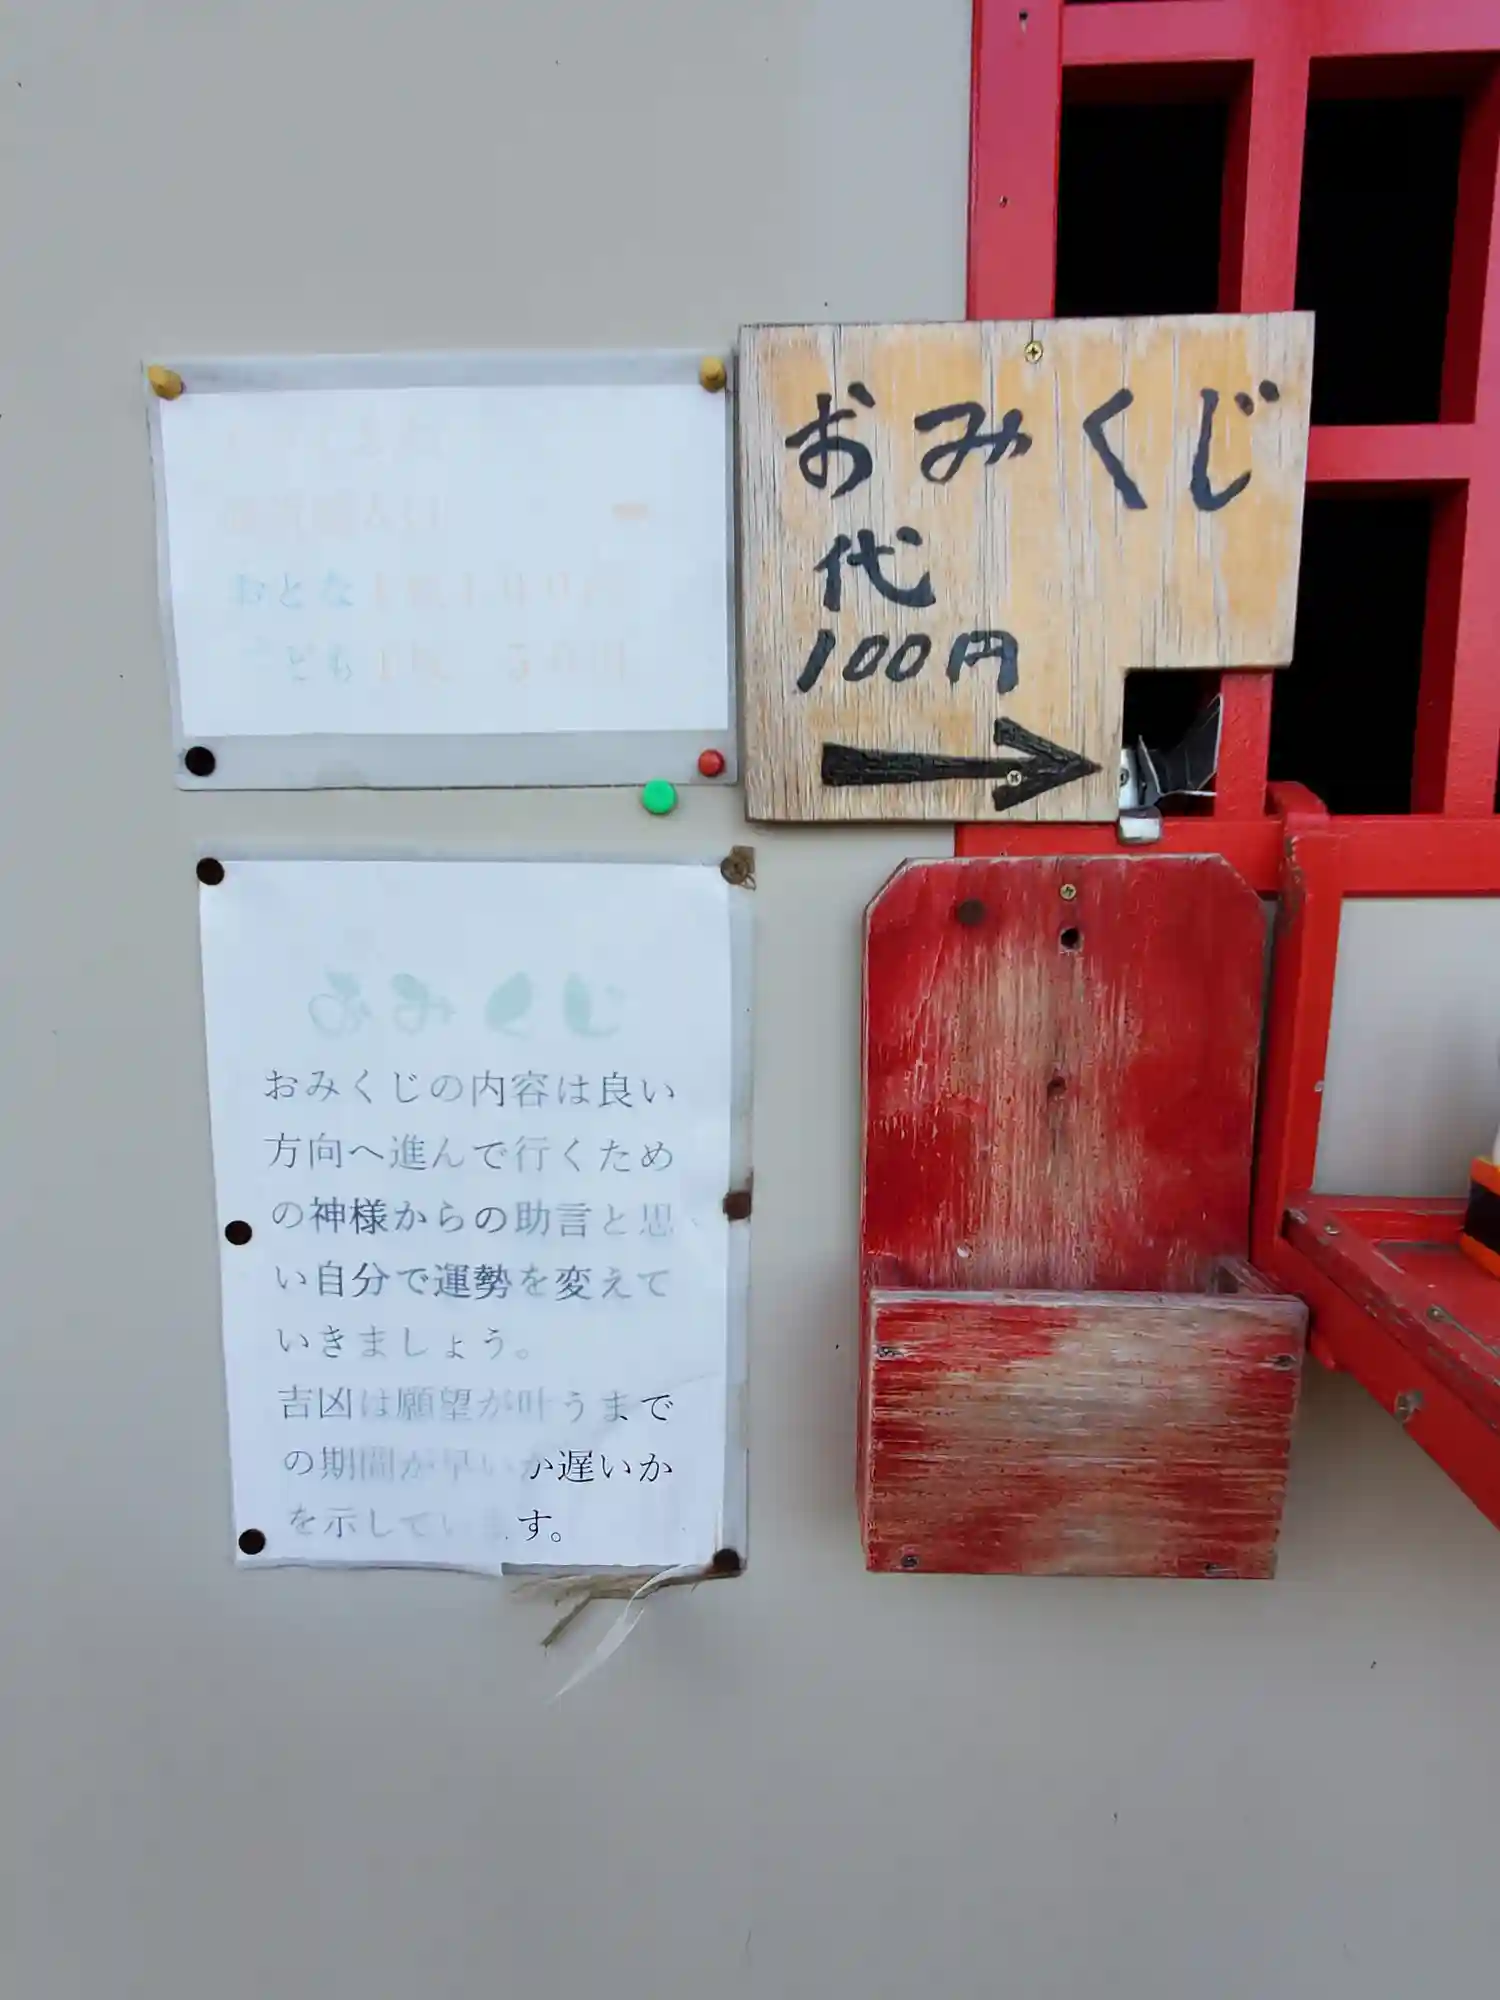 おとな
ども
おみくじ
代
100円
おみくじ
おみくじの内容は良い
方向へ進んで行くため
の神様からの助言と思
い自分で運勢を変えて
いきましょう。
吉凶は願望が叶うまで
の期間が早いか遅いか
を示しています。